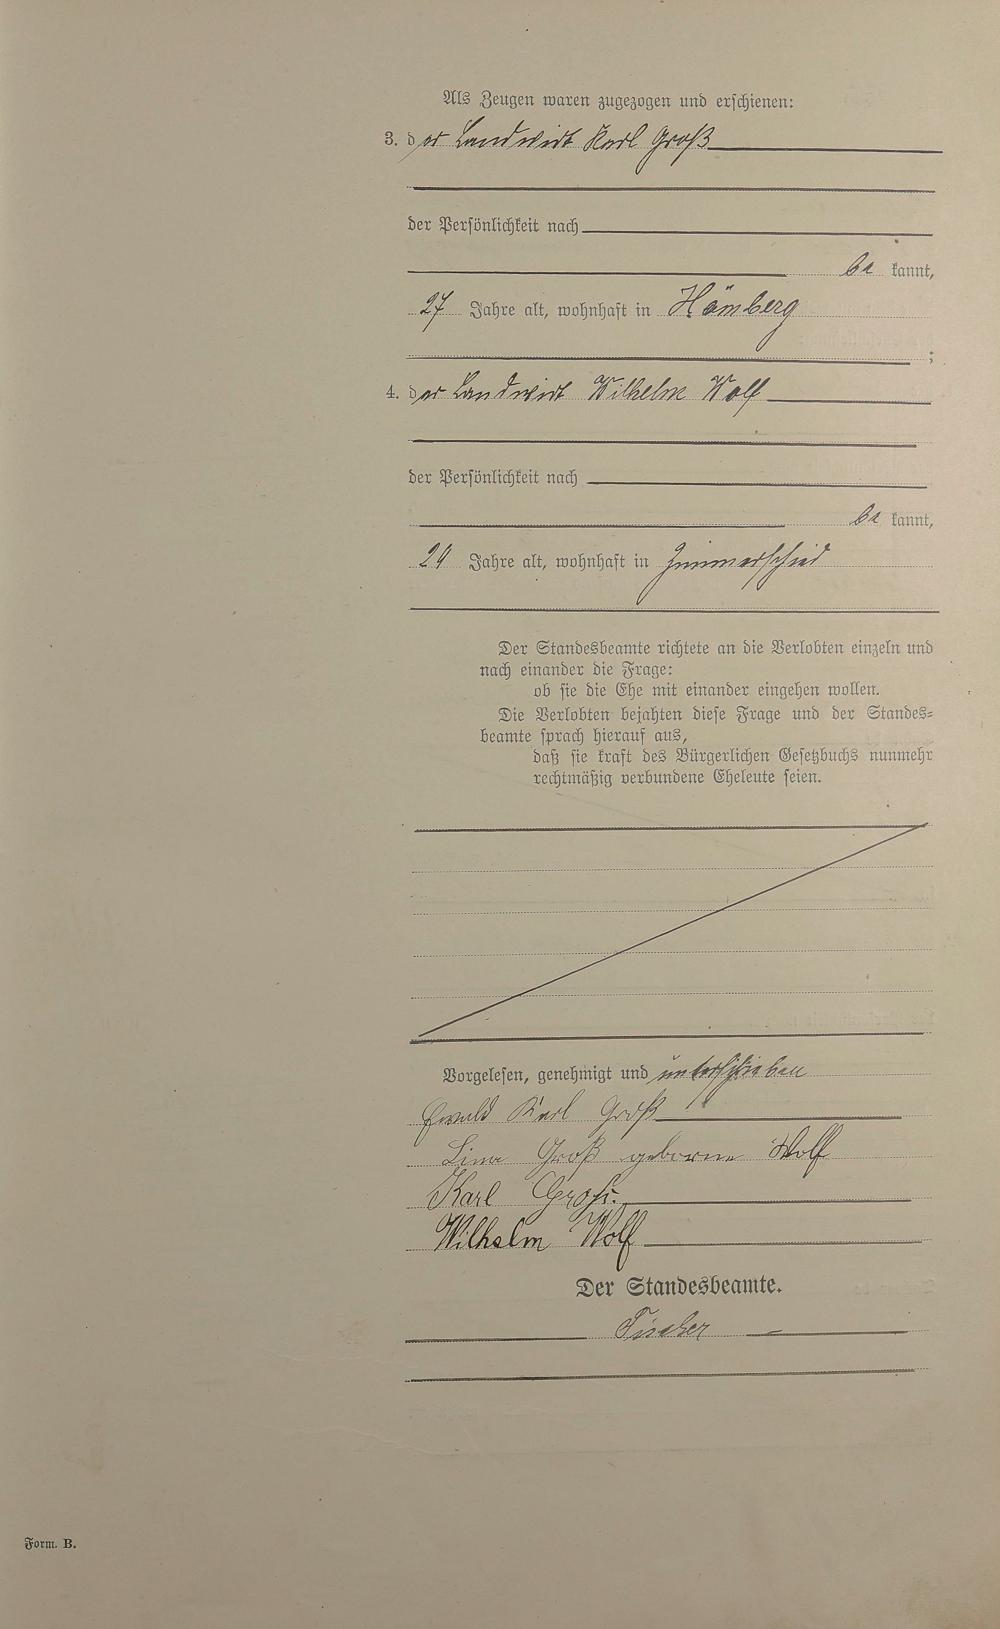 Als Zeugen waren zugezogen und erschienen:
3. der Landwirt Karl Groß
der Persönlichkeit nach
be kannt,
27 Jahre alt, wohnhaft in Hömberg
;
4. der Landwirt Wilhelm Wolf
der Persönlichkeit nach
be kannt,
29 Jahre alt, wohnhaft in Zimmerschied
Der Standesbeamte richtete an die Verlobten einzeln und
nach einander die Frage:
ob sie die Ehe mit einander eingehen wollen.
Die Verlobten bejahten diese Frage und der Standes-
beamte sprach hierauf aus,
daß sie kraft des Bürgerlichen Gesetzbuchs nunmehr
rechtmäßig verbundene Eheleute seien.
Vorgelesen, genehmigt und unterschrieben
Ewald Karl Groß
Lina Groß geborene Wolf
Karl Groß.
Wilhelm Wolf
Der Standesbeamte.
Form. B.